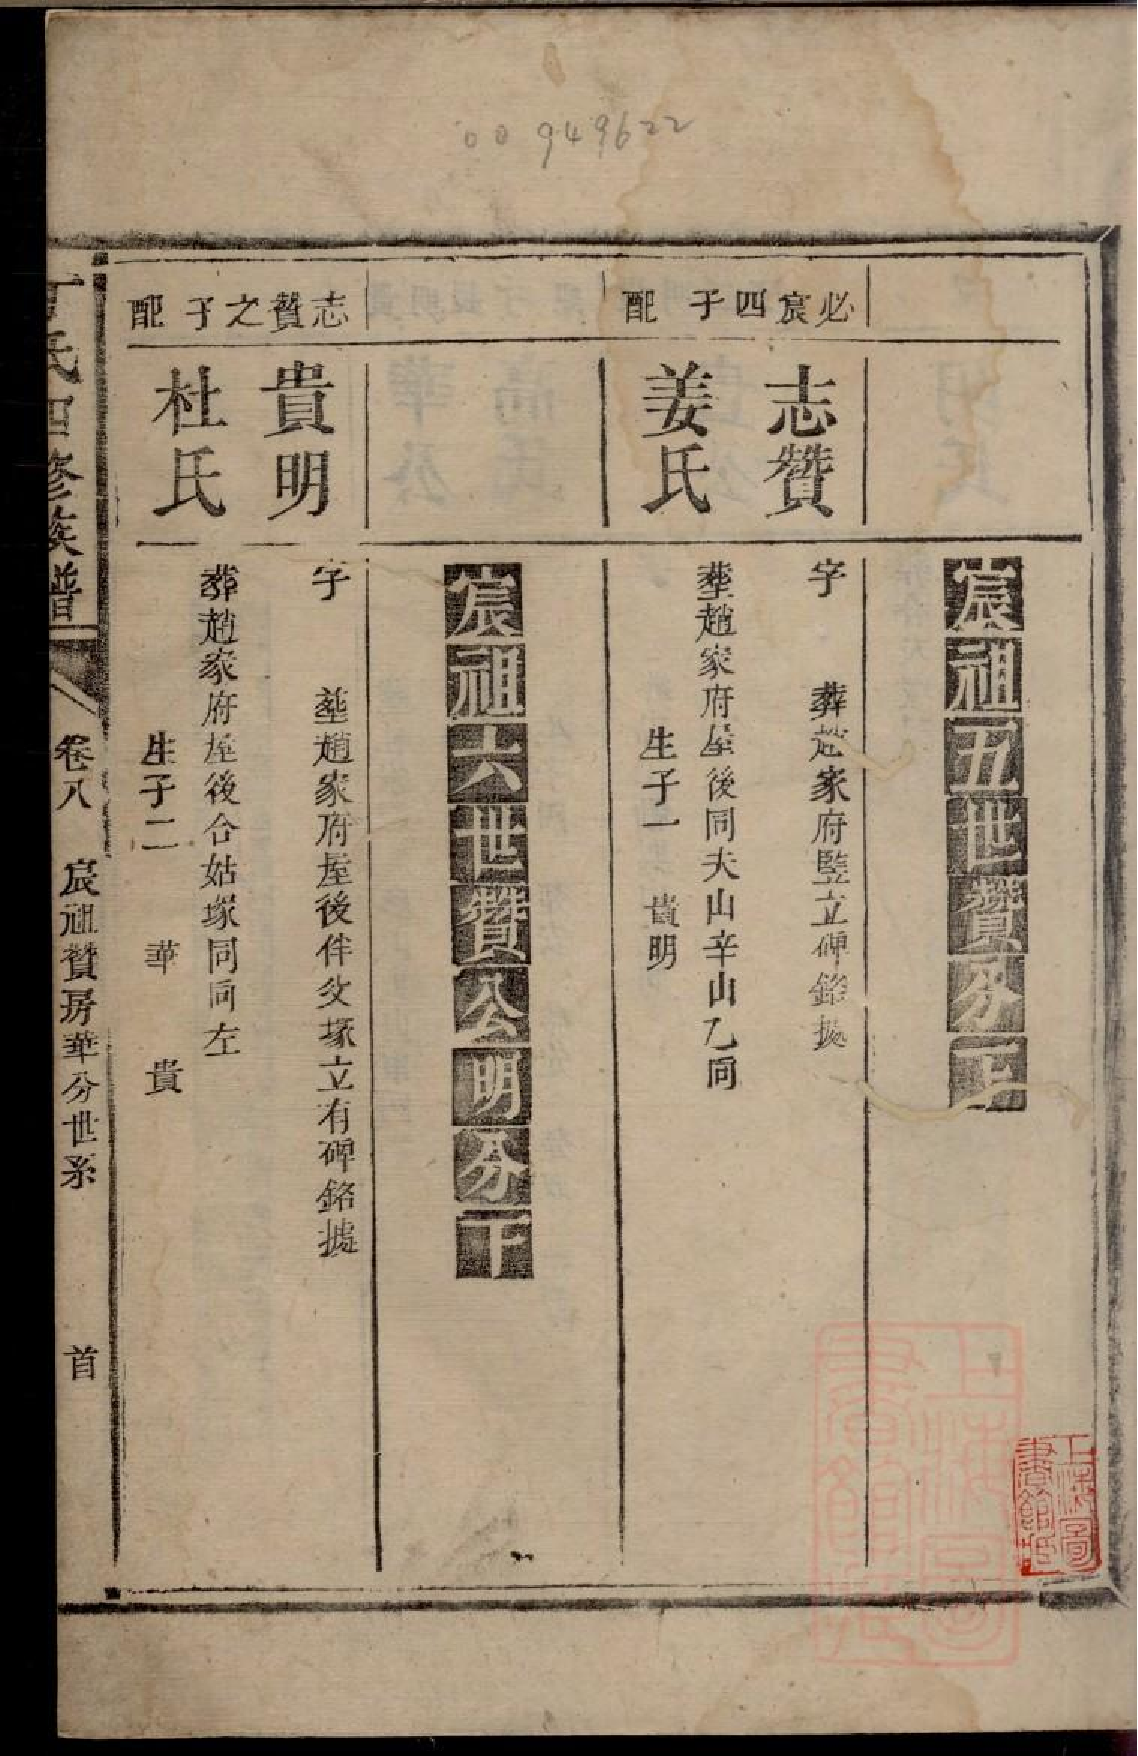 00949622
宸祖五世贊分上
必宸四子 配
志贊
字 葬趙家府竪立碑銘據
姜氏
塟趙家府屋後同夫山辛山乙向
生子一 貴明
宸祖六世贊公明分下
志贊之子 配
貴明
字 塟趙家府屋後伴父塚立有碑銘據
杜氏
葬趙家府屋後合姑塚同向左
生子二 華 貴
丁氏四修族譜
卷八 宸祖贊房華分世系 首
上海圖書館藏